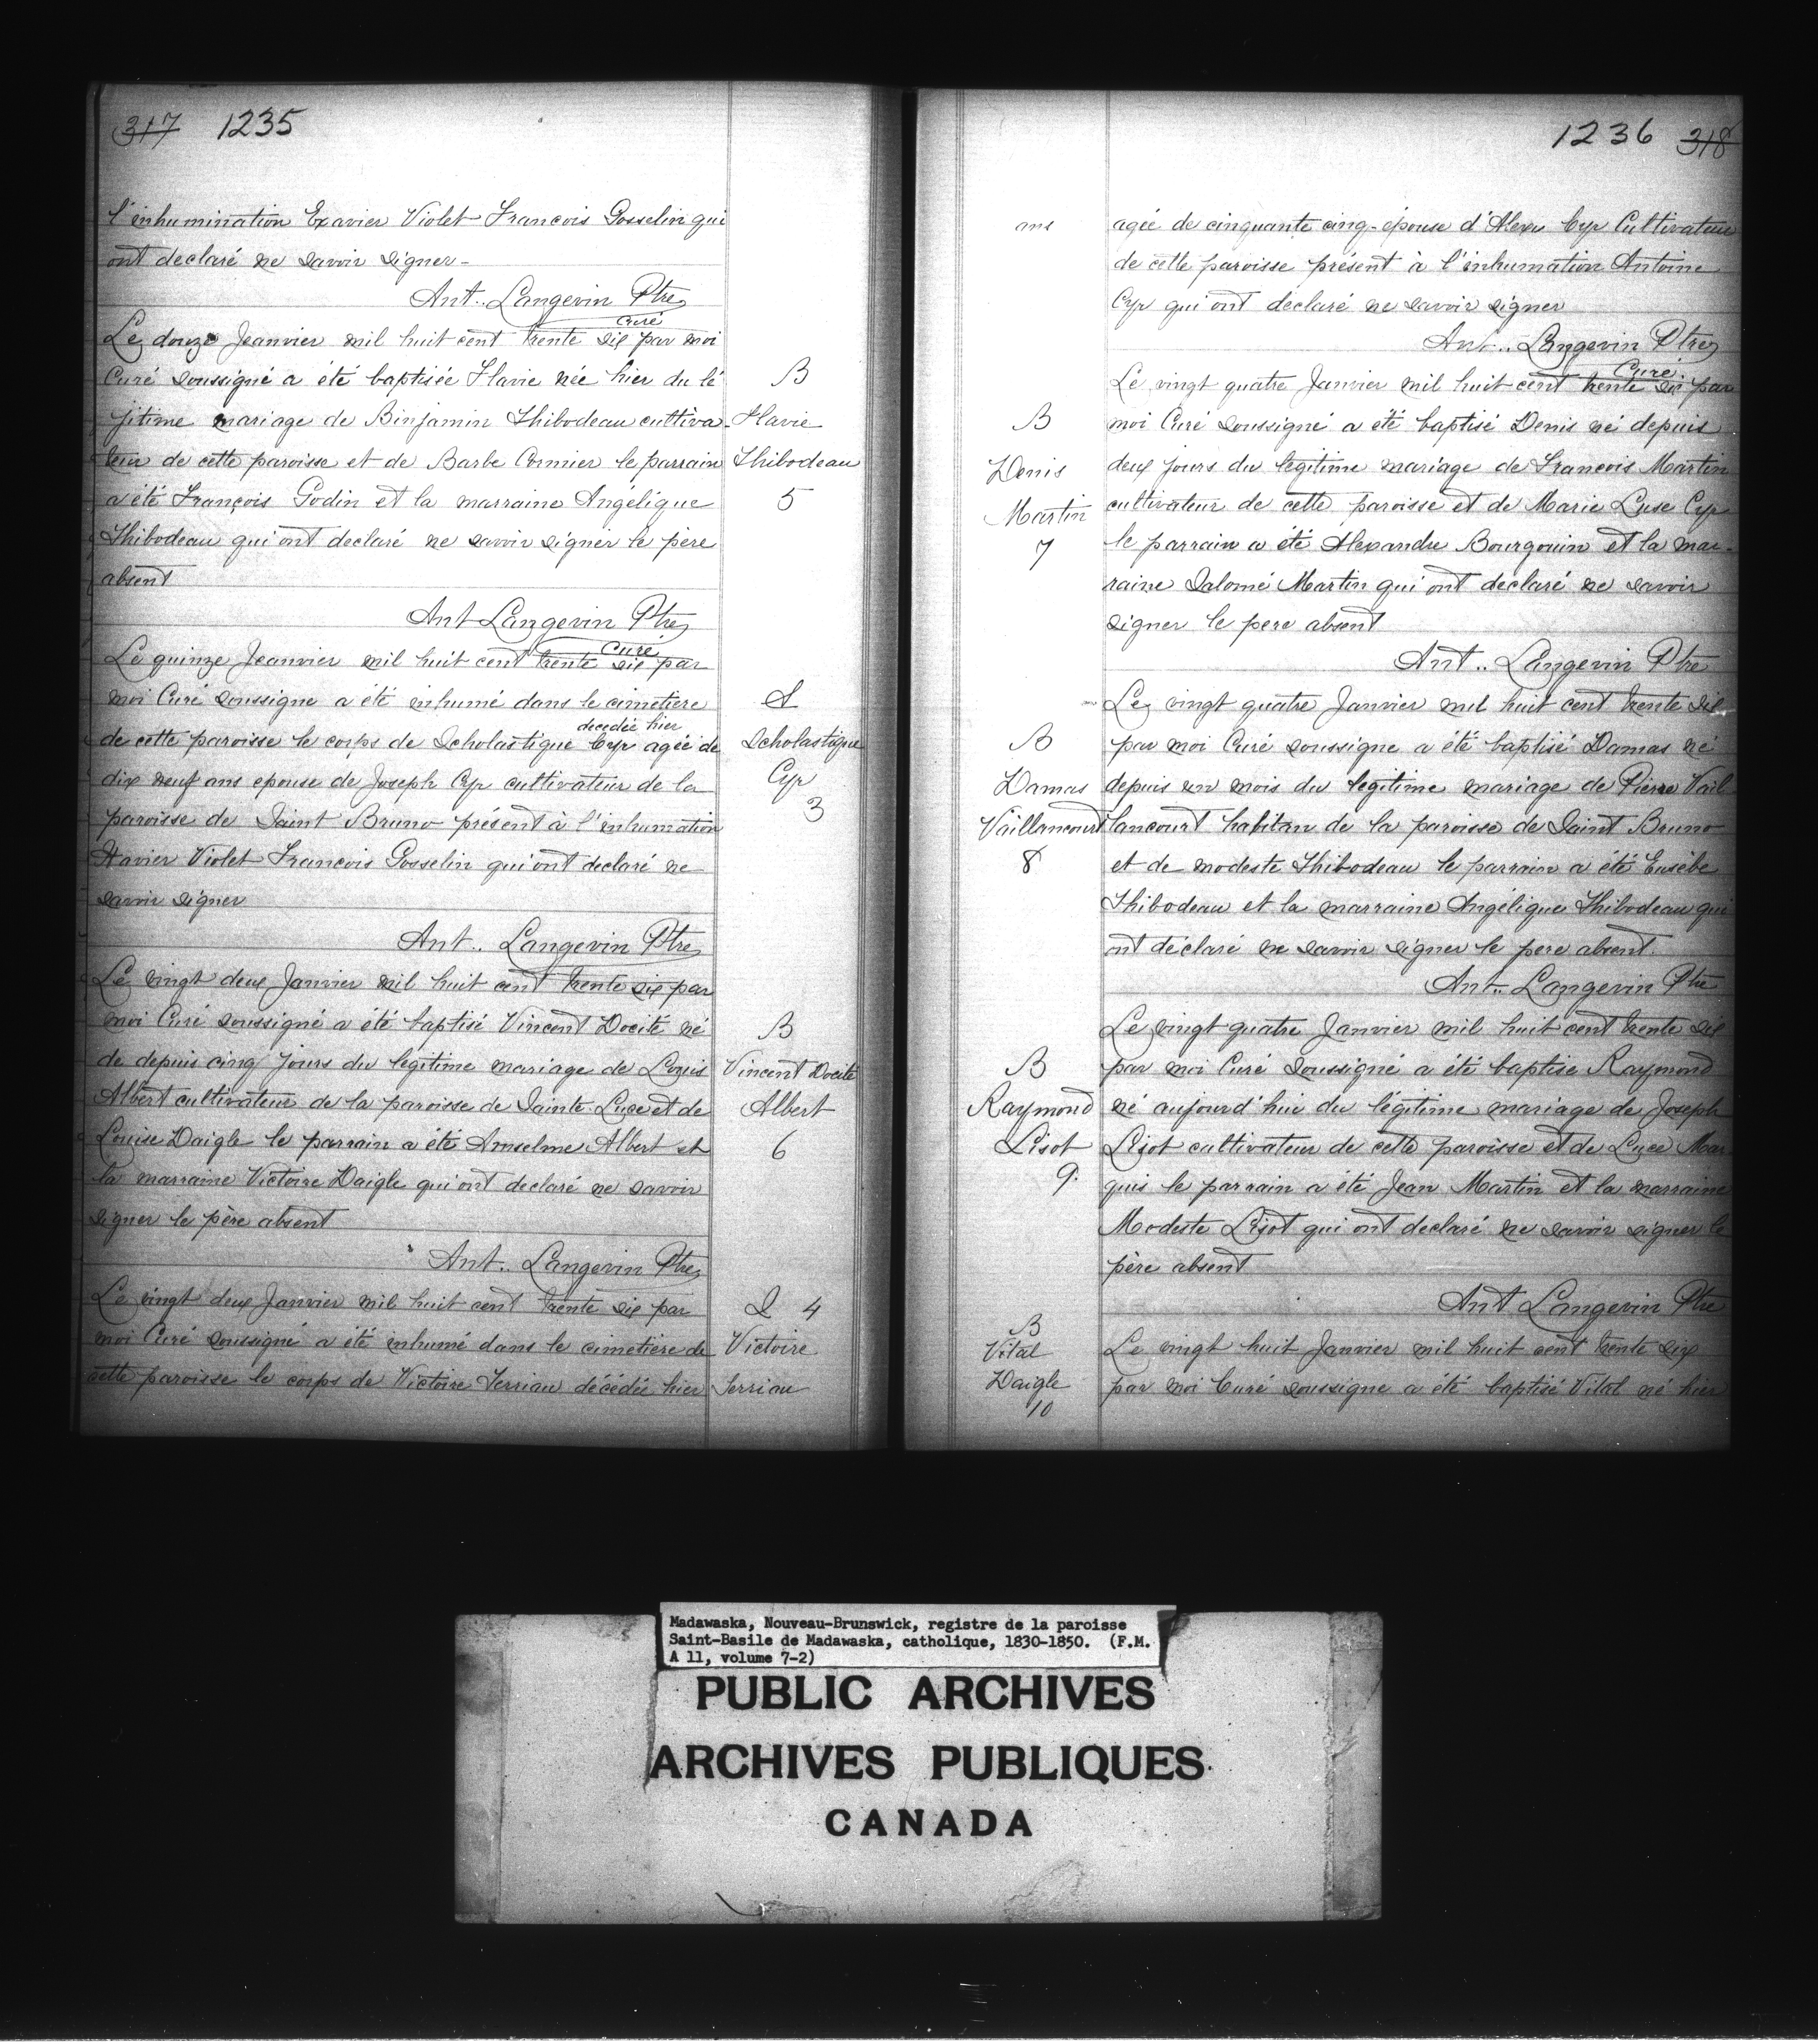 317 1235
l'inhumination Exavier Violet Francois Gosselin qui
ont declaré ne savoir signer-
Ant.. Langevin Ptre
Curé
Le douze Jeanvier mil huit cent trente six par moi
Curé soussigné a été baptisée Flavie née hier du lé
B
jitime mariage de Binjamin Thibodeau cultiva-
Flavie
teur de cette paroisse et de Barbe Cormier le parrain
Thibodeau
a été François Godin et la marraine Angélique
5
Thibodeau qui ont declaré ne savoir signer le père
absent
Ant Langevin Ptre
Curé
Le quinze Jeanvier mil huit cent trente six par
moi Curé soussigne a été inhumé dans le cimetiere
S
decedée hier
de cette paroisse le corps de Scholastique Cyr agée de
Scholastique
dix neuf ans epouse de Joseph Cyr cultivateur de la
Cyr
paroisse de Saint Bruno présent à l'inhumation
3
Xavier Violet Francois Gosselin qui ont declaré ne
savoir signer
Ant.. Langevin Ptre
Le vingt deux Janvier mil huit cent trente six par
moi Curé soussigné a été baptisé Vincent Docité né
B
de depuis cinq jours du legitime mariage de Louis
Vincent Docité
Albert cultivateur de la paroisse de Sainte Luce et de
Albert
Louise Daigle le parrain a été Anselme Albert et
6
la marraine Victoire Daigle qui ont declaré ne savoir
signer le père absent
Ant.. Langevin Ptre
Le vingt deux Janvier mil huit cent trente six par
S 4
moi Curé soussigné a été inhumé dans le cimetière de
Victoire
cette paroisse le corps de Victoire Terriau décédée hier
Terriau
1236 318
ans
agée de cinquante cinq-épouse d'Alexis Cyr Cultivateur
de cette paroisse présent à l'inhumation Antoine
Cyr qui ont declaré ne savoir signer
Ant.. Langevin Ptre
Curé.
Le vingt quatre Janvier mil huit cent trente six par
B
moi Curé soussigné a été baptisé Denis né depuis
Denis
deux jours du légitime mariage de Francois Martin
Martin
cultivateur de cette paroisse et de Marie Luse Cyr
7
le parrain a été Alexandre Bourgouin et la mar-
raine Salomé Martin qui ont declaré ne savoir
signer le pere absent
Ant.. Langevin Ptre
Le vingt quatre Janvier mil huit cent trente six
B
par moi Curé soussigne a été baptisé Damas né
Damas
depuis un mois du légitime mariage de Pierre Vail
Vaillancourt
lancourt habitan de la paroisse de Saint Bruno
8
et de modeste Thibodeau le parrain a été Eusèbe
Thibodeau et la marraine Angélique Thibodeau qui
ont déclaré ne savoir signer le pere absent.
Ant.. Langevin Ptre
Le vingt quatre Janvier mil huit cent trente six
B
par moi Curé soussigné a été baptise Raymond
Raymond
né aujourd'hui du légitime mariage de Joseph
Lisot
Lisot cultivateur de cette paroisse et de Luce Mar
9.
quis le parrain a été Jean Martin et la marraine
Modeste Lisot qui ont declaré ne savoir signer le
père absent
Ant Langevin Ptre
B
Vital
Le vingt huit Janvier mil huit cent trente six
Daigle
par moi Curé soussigne a été baptisé Vital né hier
10
Madawaska, Nouveau-Brunswick, registre de la paroisse
Saint-Basile de Madawaska, catholique, 1830-1850. (F.M.
A 11, volume 7-2)
PUBLIC ARCHIVES
ARCHIVES PUBLIQUES
CANADA